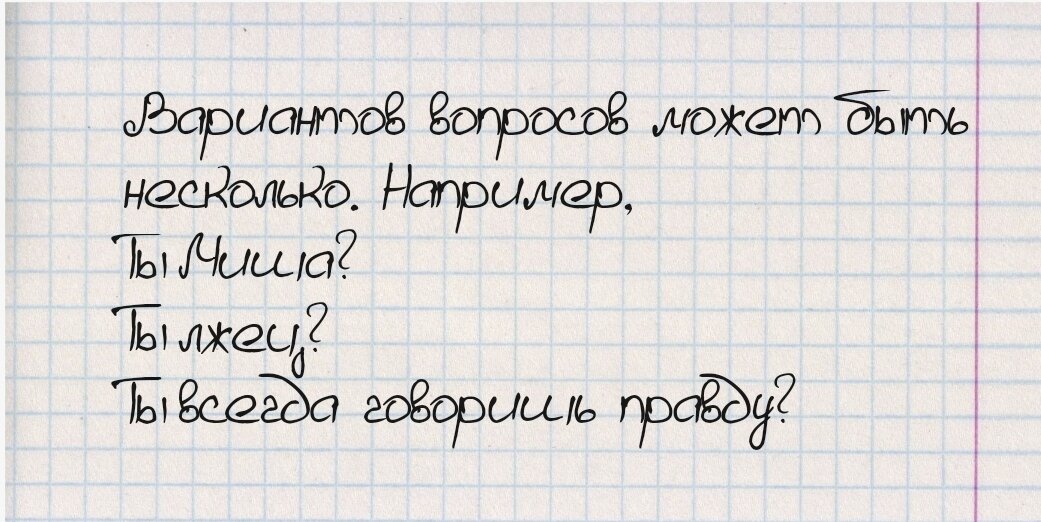 Вариантов вопросов может быть
несколько. Например,
Ты Миша?
Ты лжец?
Ты всегда говоришь правду?